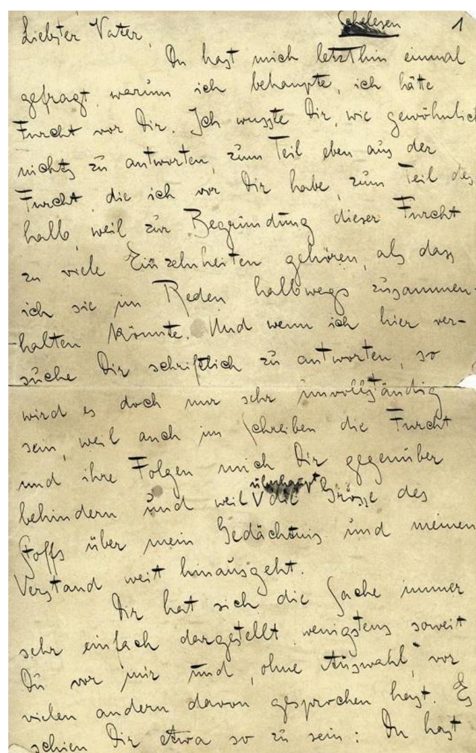 Liebster Vater, 1
Du hast mich letzthin einmal
gefragt, warum ich behaupte, ich hätte
Furcht vor Dir. Ich wusste Dir, wie gewöhnlich
nichts zu antworten, zum Teil eben aus der
Furcht, die ich vor Dir habe, zum Teil des
halb, weil zur Begründung dieser Furcht
zu viele Einzelnheiten gehören, als dass
ich sie im Reden halbwegs zusammen-
halten könnte. Und wenn ich hier ver-
suche Dir schriftlich zu antworten, so
wird es doch nur sehr unvollständig
sein, weil auch im Schreiben die Furcht
und ihre Folgen mich Dir gegenüber
behindern und weil überhaupt die Grösse des
Stoffs über mein Gedächtnis und meinen
Verstand weit hinausgeht.
Dir hat sich die Sache immer
sehr einfach dargestellt, wenigstens soweit
Du vor mir und, ohne Auswahl, vor
vielen andern davon gesprochen hast. Es
schien Dir etwa so zu sein: Du hast